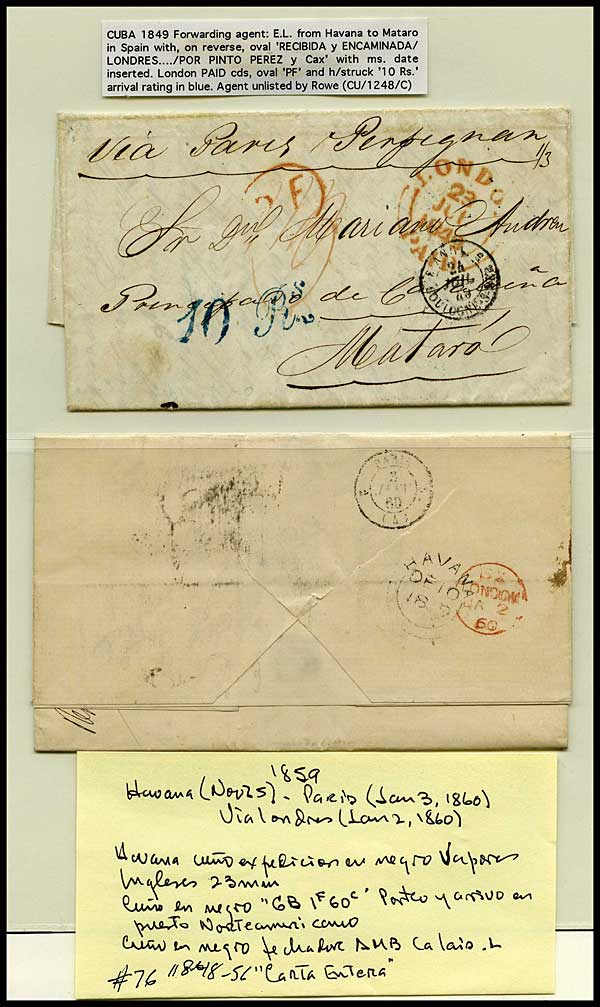 CUBA 1849 Forwarding agent: E.L. from Havana to Mataro
in Spain with, on reverse, oval 'RECIBIDA y ENCAMINADA/
LONDRES..../POR PINTO PEREZ y Cax' with ms. date
inserted. London PAID cds, oval 'PF' and h/struck '10 Rs.'
arrival rating in blue. Agent unlisted by Rowe (CU/1248/C)
Via Paris Perpignan
1/3
PF
LONDON
22
PAID
Sr Dn Mariano Andreu
BOULOGNE
Principado de Cataluña
10 Rs.
Mataró
PARIS
3
60
HAVANA
LONDON
JA 2
60
1859
Havana (Nov 25) - Paris (Jan 3, 1860)
Via Londres (Jan 2, 1860)
Havana cuño expedicion en negro Vapores
Ingleses 23mm
Cuño en negro "GB 1F60c" Porteo y arrivo en
puerto Norteamericano
Cuño en negro fechador AMB Calais.
#76 "1848-51 "Carta Entera"